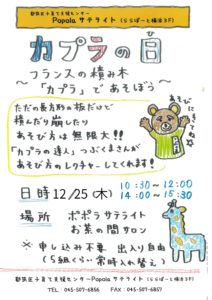 都筑区子育て支援センター
Popola サテライト (ららぽーと横浜3F)
カプラの日
~フランスの積み木
「カプラ」であそぼう~
あそびにきてね
ただの長方形の板だけど
積んだり崩したり
あそび方は無限大!!
「カプラの達人」つぶくまさんが
あそび方のレクチャーしてくれます!
日時 12/25 (木) 10:30~12:00
14:00~15:30
場所 ポポラサテライト
お茶の間サロン
※申し込み不要 出入り自由
(5組くらい 常時入れ替え)
都筑区子育て支援センターPopolaサテライト (ららぽーと横浜3F)
TEL:045-507-6856 FAX:045-507-6857